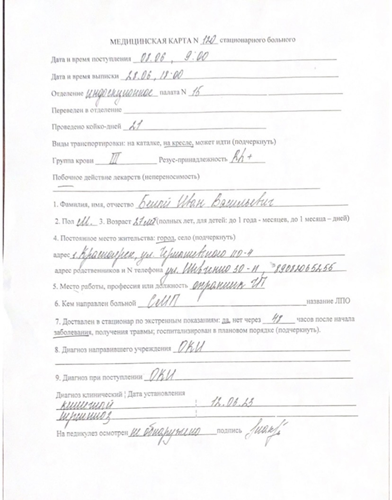 МЕДИЦИНСКАЯ КАРТА N 120 стационарного больного
Дата и время поступления 08.06, 9:00
Дата и время выписки 28.06, 18:00
Отделение инфекционное палата N 15
Переведен в отделение
Проведено койко-дней 21
Виды транспортировки: на каталке, на кресле, может идти (подчеркнуть)
Группа крови III Резус-принадлежность Rh+
Побочное действие лекарств (непереносимость)
1. Фамилия, имя, отчество Белой Иван Васильевич
2. Пол м. 3. Возраст (полных лет, для детей: до 1 года - месяцев, до 1 месяца – дней)
4. Постоянное место жительства: город, село (подчеркнуть)
адрес г. Красноярск, ул.
адрес родственников и N телефона ул.
5. Место работы, профессия или должность
6. Кем направлен больной СМП название ЛПО
7. Доставлен в стационар по экстренным показаниям: да, нет через 48 часов после начала
заболевания, получения травмы; госпитализирован в плановом порядке (подчеркнуть).
8. Диагноз направившего учреждения ОКИ
9. Диагноз при поступлении ОКИ
Диагноз клинический | Дата установления
кишечный 12.06.23
иерсиниоз
На педикулез осмотрен не обнаружено подпись